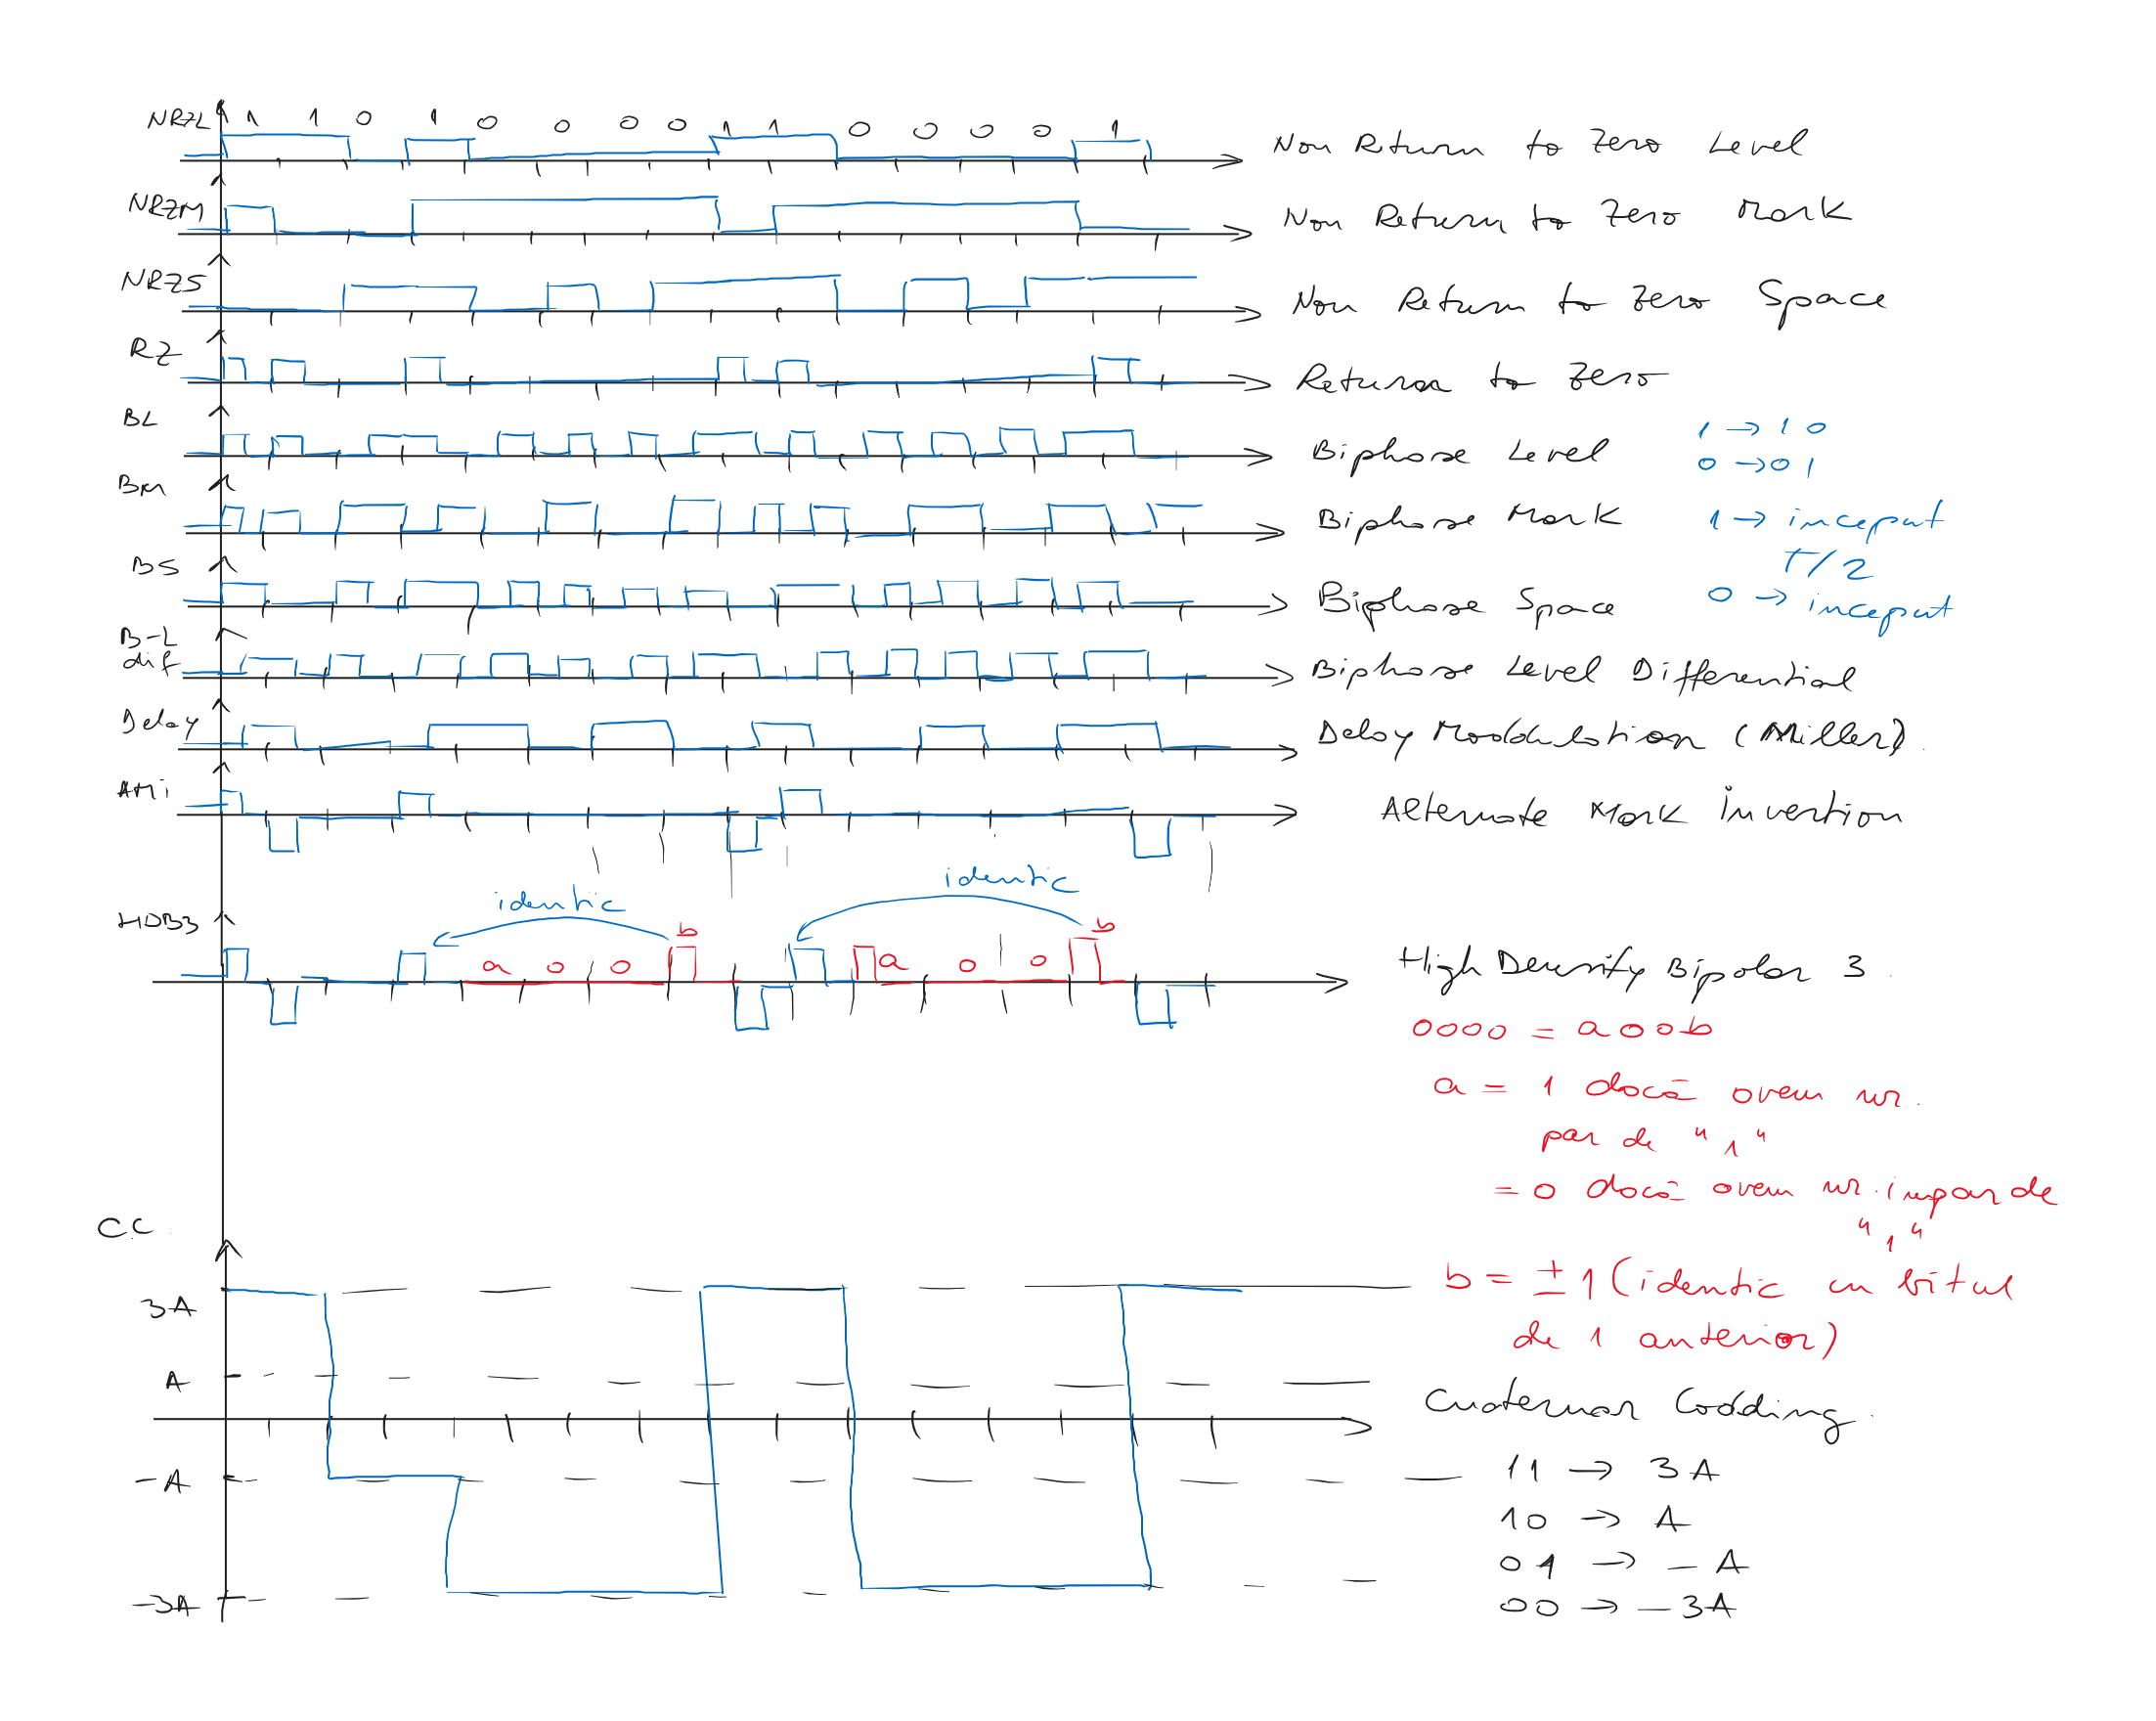 NRZL 1 1 0 1 0 0 0 0 1 1 0 0 0 0 1 Non Return to Zero Level
NRZM Non Return to Zero Mark
NRZS Non Return to Zero Space
RZ Return to Zero
BL Biphase Level 1 → 1 0
0 → 0 1
Bm Biphase Mark 1 → inceput
T/2
BS Biphase Space 0 → inceput
B-L
dif Biphase Level Differential
Delay Delay Moddulation (Miller)
AMi Alternate Mark Invertion
identic identic
HDB3 a 0 0 b a 0 0 b High Density Bipolar 3
0000 = a00b
a = 1 dacă avem nr.
par de "1"
= 0 dacă avem nr. impar de
"1"
CC
b = ± 1 (identic cu bitul
3A
de 1 anterior)
A
Cuaternar Codding
-A 11 → 3A
10 → A
01 → -A
-3A 00 → -3A